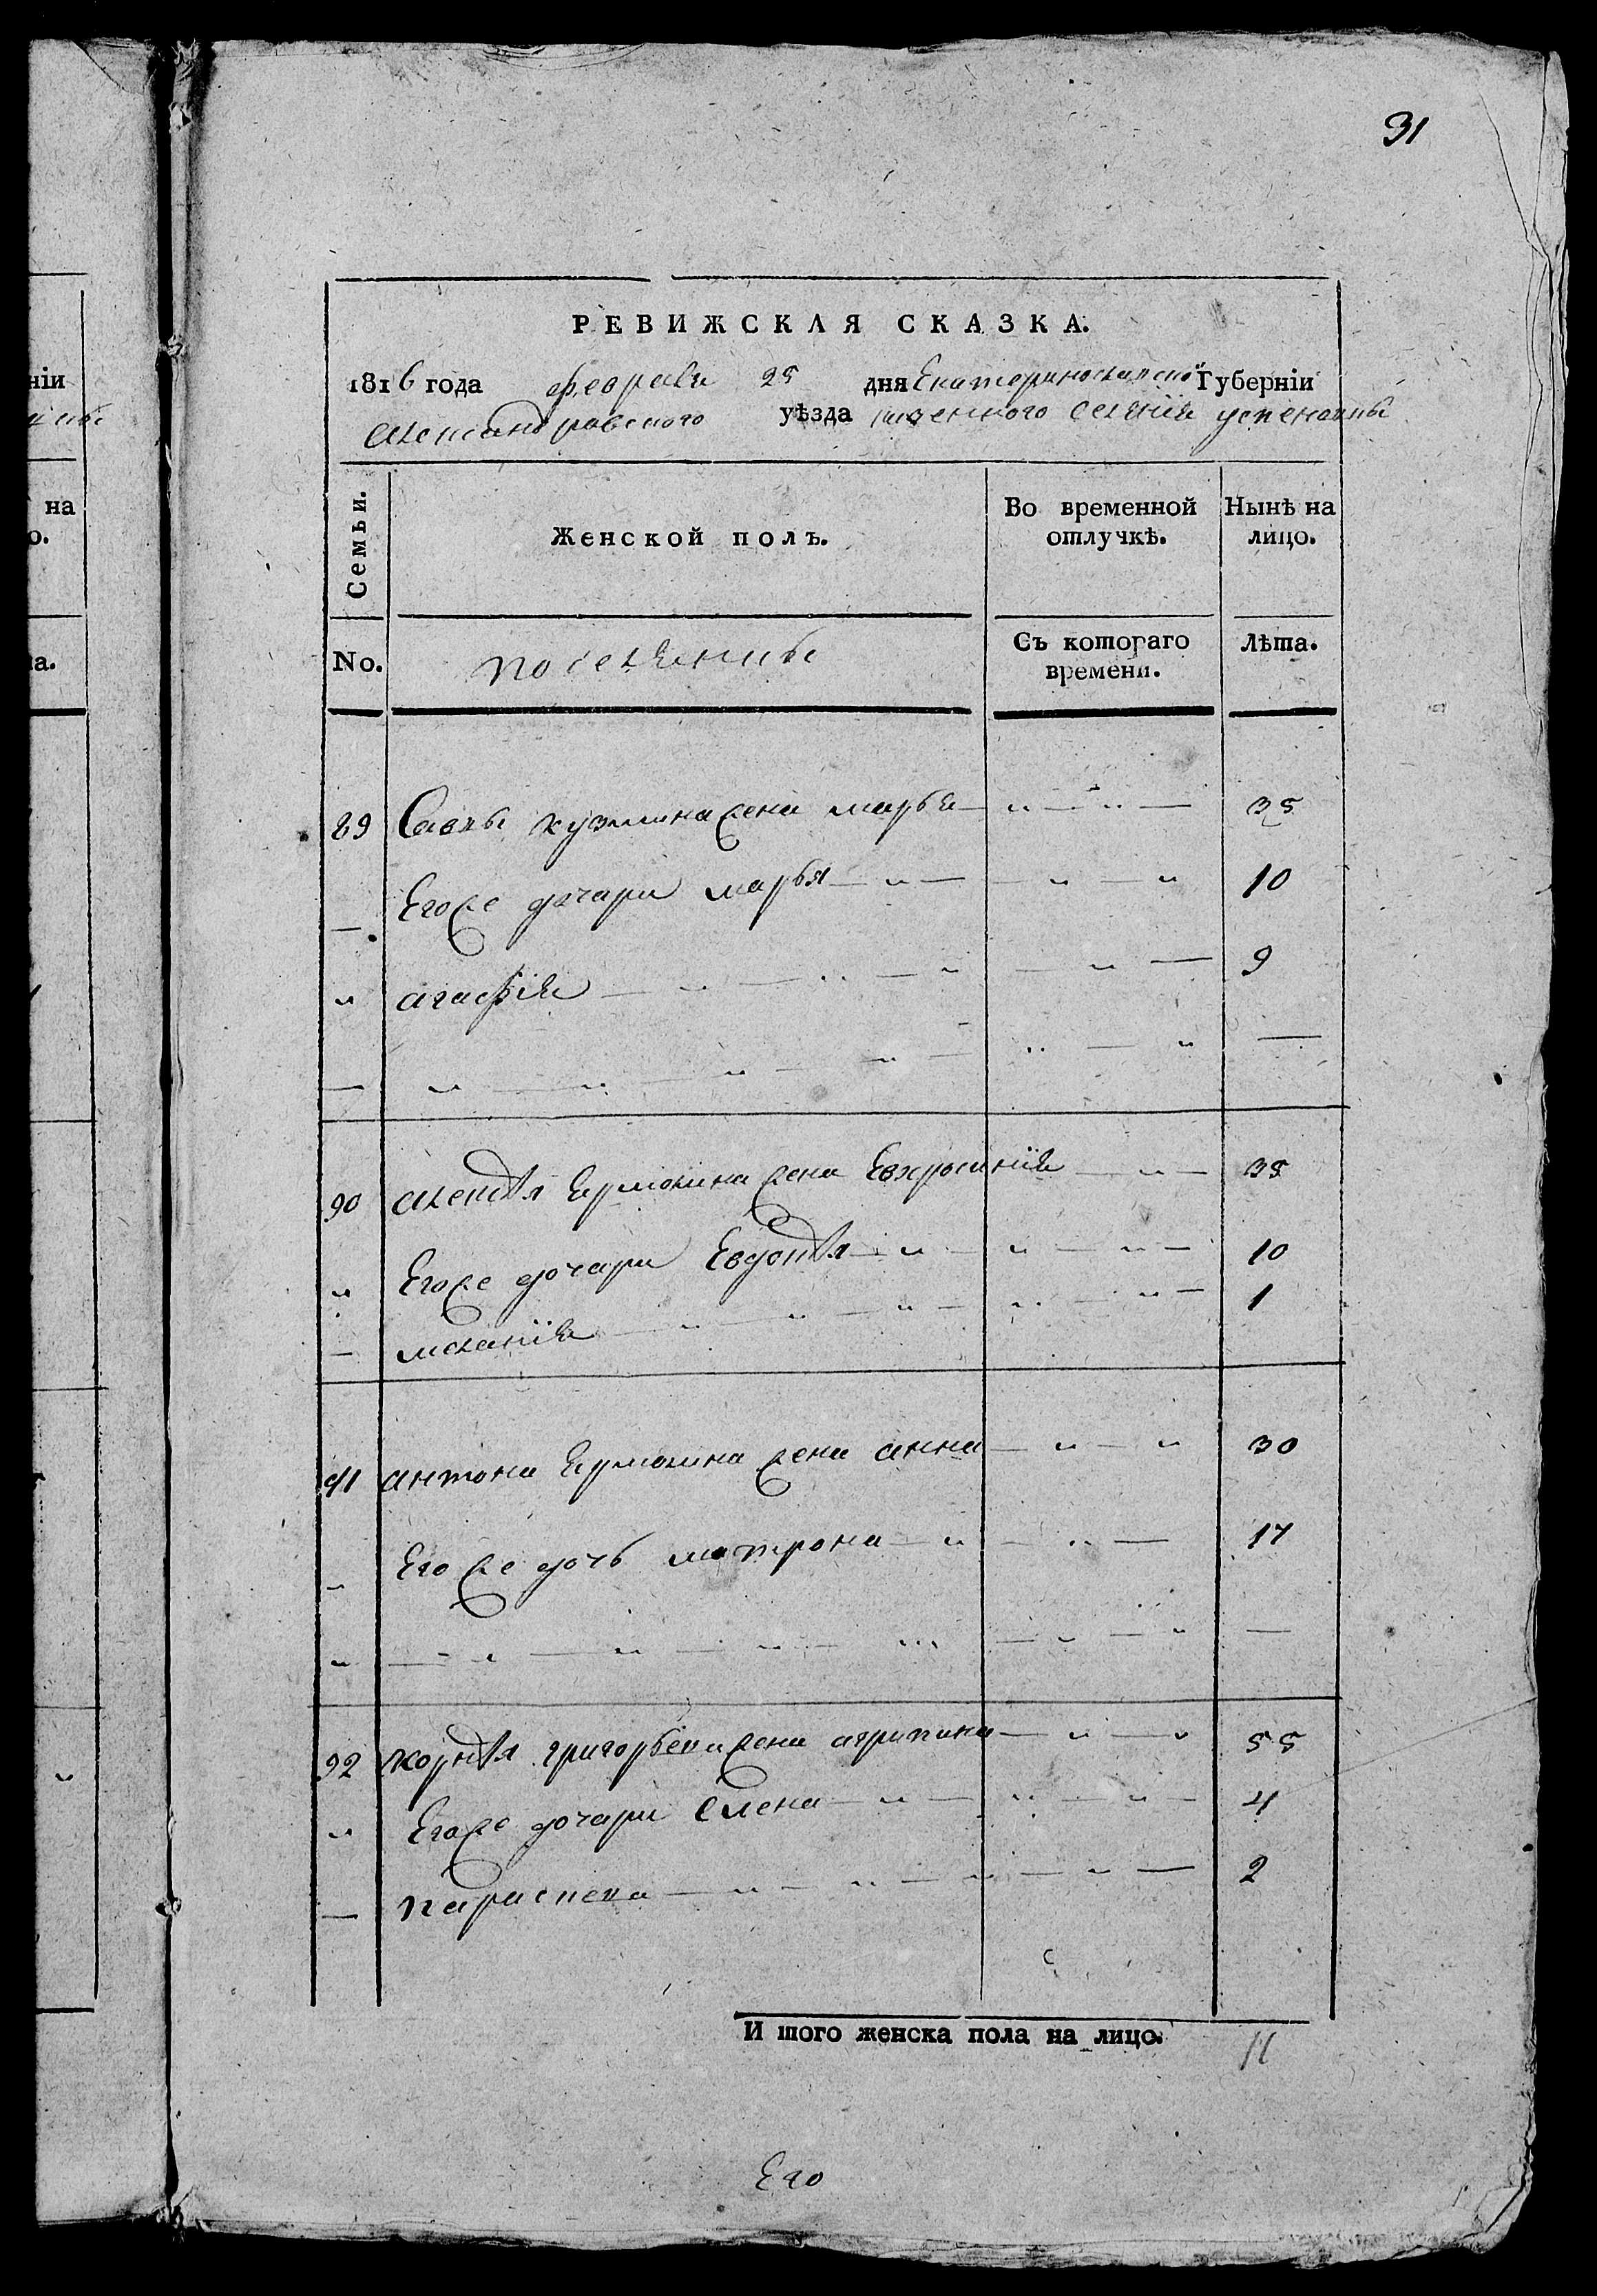 31
нiи
на
о.
ла.
РЕВИЖСКАЯ СКАЗКА.
1816 года февраля 25 дня Екатеринославской Губернiи
Александровского уѣзда казенного селенiя успеновки
Семьи.
Женской полъ.
Во временной отлучкѣ.
Нынѣ на лицо.
No.
поселенцы
Съ котораго времени.
Лѣта.
89 Савы кузмина жена марья 35
Егоже дочари марья 10
агафiя 9
90 алексѣя Ермолина жена Евхросинiя 35
Егоже дочари Евдокѣя 10
меланiя 1
91 антона Ермолина жена анна 30
Его же дочь матрона 17
92 корнѣя григорьева жена агрипина 55
Егоже дочари Елена 4
параскева 2
И того женска пола на лицо. 11
Его